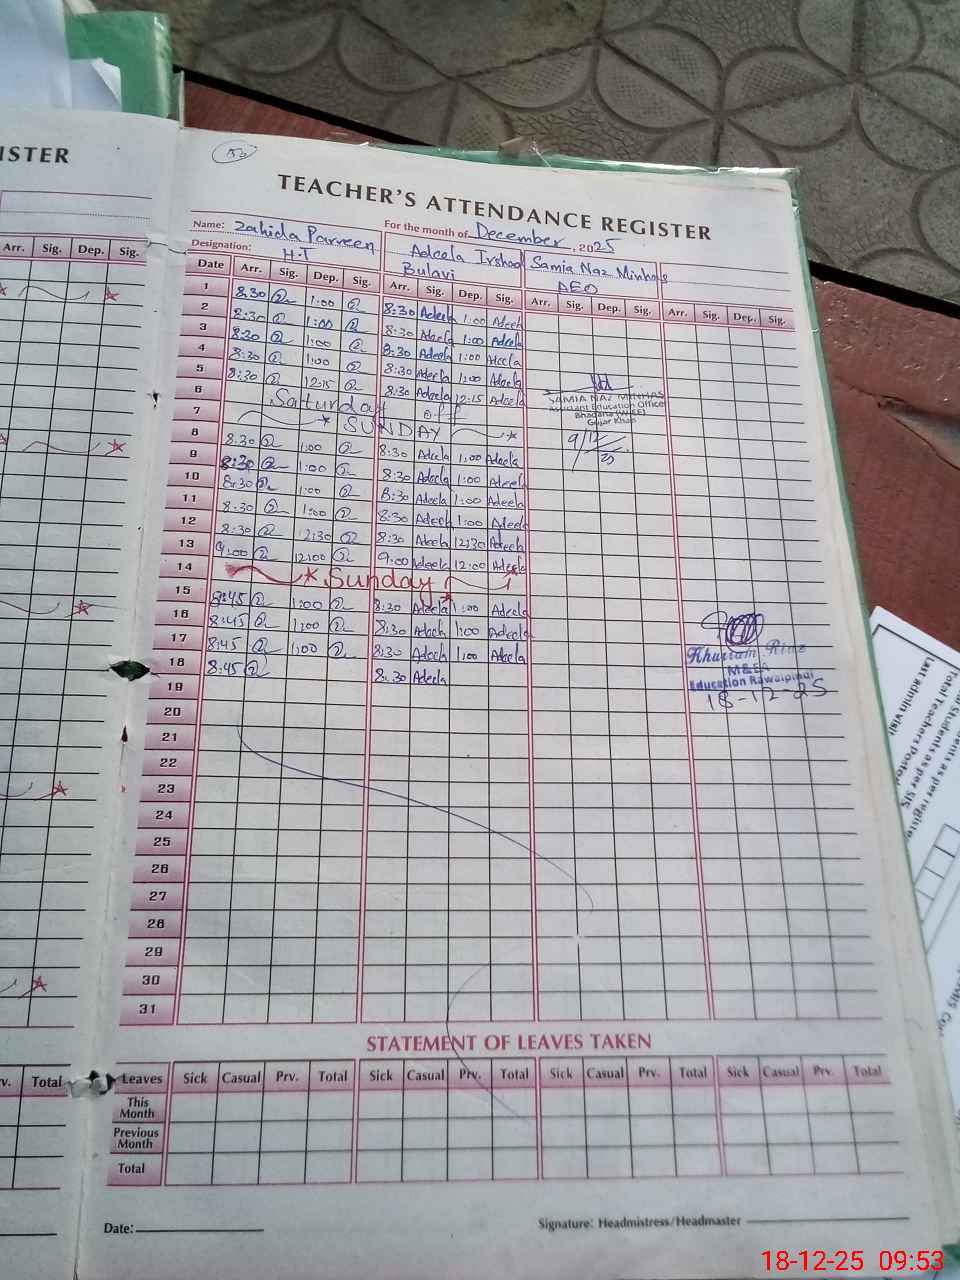 ISTER
Arr. Sig. Dep. Sig.
v. Total
TEACHER'S ATTENDANCE REGISTER
Name: Zahida Parveen For the month of December, 2025
Designation: H.T Adeela Irshad Samia Naz Minhas
AEO
Date Arr. Sig. Dep. Sig. Arr. Sig. Dep. Sig. Arr. Sig. Dep. Sig. Arr. Sig. Dep. Sig.
1 8:30 1:00 8:30 Adeela 1:00 Adeela
2 8:30 1:00 8:30 Adeela 1:00 Adeela
3 8:30 1:00 8:30 Adeela 1:00 Adeela
4 8:30 1:00 8:30 Adeela 1:00 Adeela
5 8:30 12:15 8:30 Adeela 12:15 Adeela
6 Saturday off
7 SUNDAY
8 8:30 1:00 8:30 Adeela 1:00 Adeela
9 8:30 1:00 8:30 Adeela 1:00 Adeela
10 8:30 1:00 8:30 Adeela 1:00 Adeela
11 8:30 1:00 8:30 Adeela 1:00 Adeela
12 8:30 12:30 8:30 Adeela 12:30 Adeela
13 9:00 12:00 9:00 Adeela 12:00 Adeela
14 Sunday
15 8:45 1:00 8:30 Adeela 1:00 Adeela
16 8:45 1:00 8:30 Adeela 1:00 Adeela
17 8:45 1:00 8:30 Adeela 1:00 Adeela
18 8:45 8:30 Adeela
19
20
21
22
23
24
25
26
27
28
29
30
31
SAMIA NAZ MINHAS
Assistant Education Officer
Gujar Khan
9/12/25
Khurram Riaz
M&EA
Education Rawalpindi
18-12-25
STATEMENT OF LEAVES TAKEN
Leaves Sick Casual Prv. Total Sick Casual Prv. Total Sick Casual Prv. Total Sick Casual Prv. Total
This Month
Previous Month
Total
Date:
Signature: Headmistress/Headmaster
Total Teachers Posted
Last admin visit
18-12-25 09:53